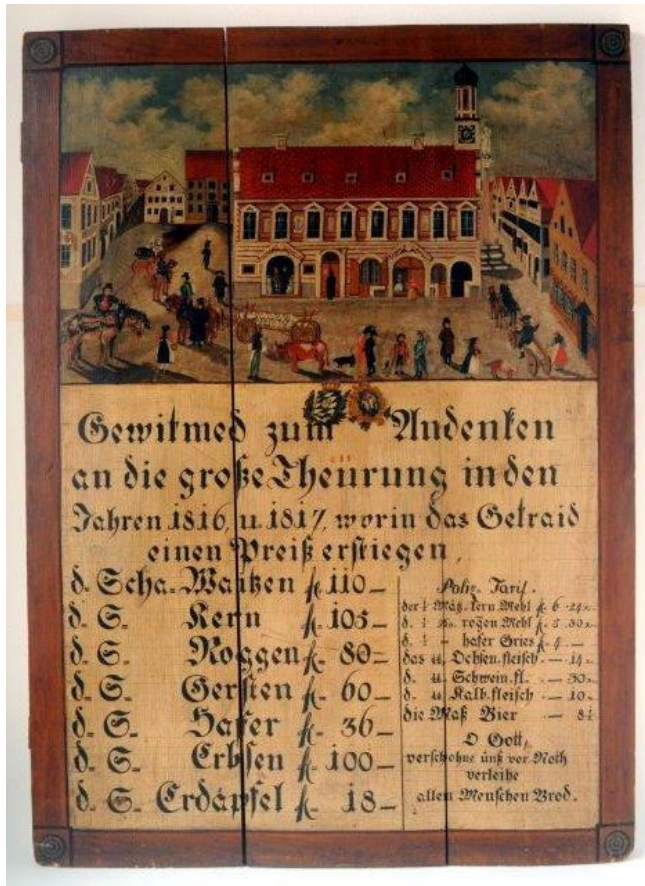 Gewitmed zum Andenken
an die große Theurung in den
Jahren 1816, u. 1817, worin das Getraid
einen Preiß erstiegen,
d. Scha. Waitzen fl. 110 —
d. S. Kern fl. 105 —
d. S. Roggen fl. 80 —
d. S. Gersten fl. 60 —
d. S. Hafer fl. 36 —
d. S. Erbsen fl. 100 —
d. S. Erdäpfel fl. 18 —
Poliz. Tarif.
der ¼ Mäz. kern Mehl fl. 6 . 24 x.
d. ¼ rogen Mehl fl. 5 . 30 x.
d. ¼ — hafer Gries fl. 4 . —
das u. Ochsen fleisch . — 14 x.
d. u. Schwein. fl. — 30 x.
d. u. Kalb. fleisch . — 10 x.
die Maß Bier — 8
O Gott,
verschohne unß vor Noth
verleihe
allen Menschen Brod.